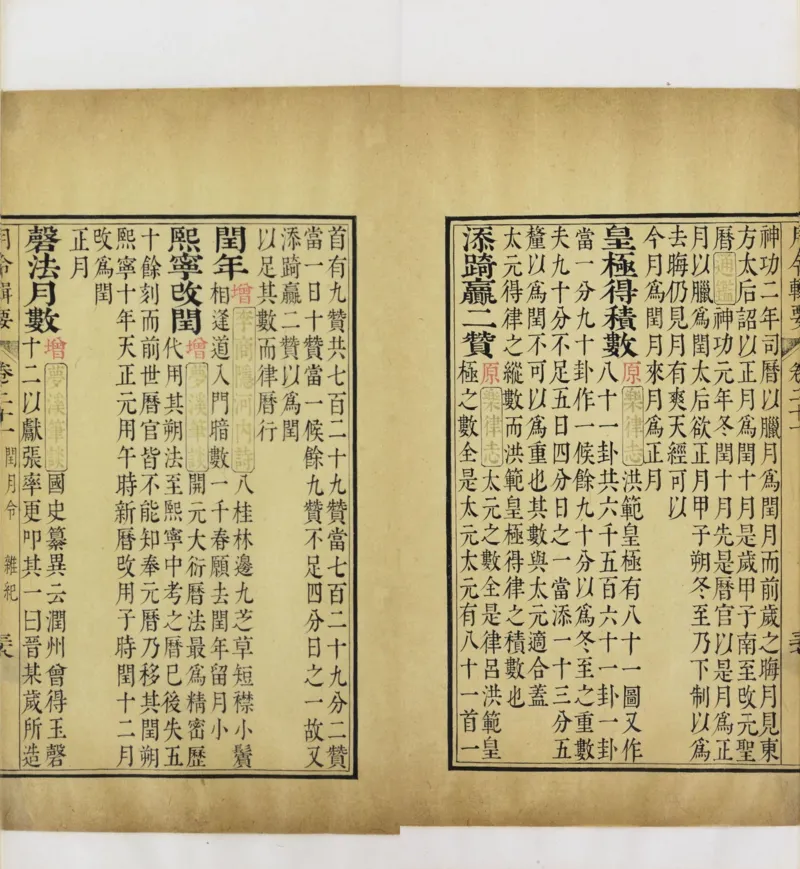 月令輯要 卷二十一
神功二年司曆以臘月爲閏月而前歲之晦月見東
方太后詔以正月爲閏十月是歲甲子南至改元聖
曆通鑑神功元年冬閏十月先是曆官以是月爲正
月以臘爲閏太后欲正月甲子朔冬至乃下制以爲
去晦仍見月有爽天經可以
今月爲閏月來月爲正月
皇極得積數 原 樂律志 洪範皇極有八十一圖又作
八十一卦共六千五百六十一卦一卦
當一分九十卦作一候餘九十分以爲冬至之重數
夫九十分不足五日四分日之一當添一十三分五
釐以爲閏不可以爲重也其數與太元適合蓋
太元得律之縱數而洪範皇極得律之積數也
添踦贏二贊 原 樂律志 太元之數全是律呂洪範皇
極之數全是太元太元有八十一首一
首有九贊共七百二十九贊當七百二十九分二贊
當一日十贊當一候餘九贊不足四分日之一故又
添踦贏二贊以爲閏
以足其數而律曆行
閏年 增 李商隱河內詩 八桂林邊九芝草短襟小鬢
相逢道入門暗數一千春願去閏年留月小
熙寧改閏 增 夢溪筆談 開元大衍曆法最爲精密歷
代用其朔法至熙寧中考之曆已後失五
十餘刻而前世曆官皆不能知奉元曆乃移其閏朔
熙寧十年天正元用午時新曆改用子時閏十二月
改爲閏
正月
磬法月數 增 夢溪筆談 國史纂異云潤州曾得玉磬
十二以獻張率更叩其一曰晉某歲所造
月令輯要 卷二十一 閏月令 雜祀